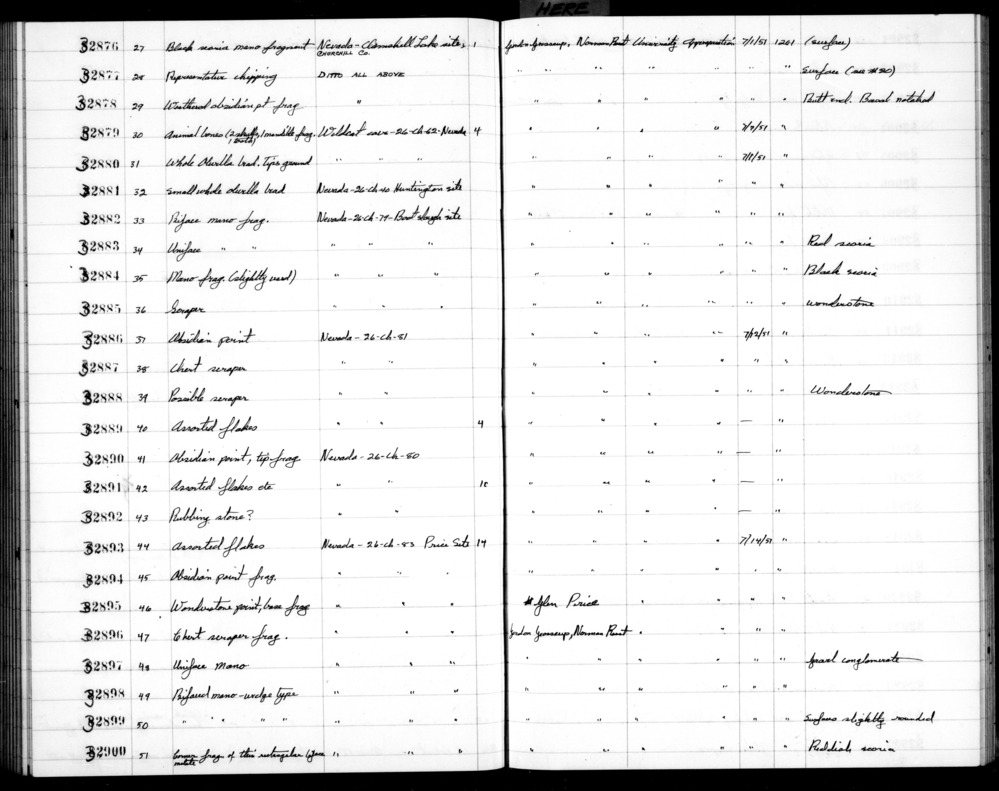 HERE
32876 27 Black scoria mano fragment Nevada - Clamshell Lake site, CHURCHILL CO. 1 Gordon Grosscup, Norman Roust University Appropriation 7/1/51 1261 (surface)
32877 28 Representative chipping DITTO ALL ABOVE " " " " " " " Surface (see #30)
32878 29 Weathered obsidian pt frag " " " " " " " Butt end. Basal notched
32879 30 Animal bones (2 skulls, 1 mandible frag. 1 tooth) Wildcat cave - 26-Ch-62 - Nevada 4 " " " " 7/9/51 "
32880 31 Whole Olivella bead. Tips ground " " " " " " " 7/9/51 "
32881 32 Small whole olivella bead Nevada - 26-Ch-40 Huntington site " " " " " "
32882 33 Biface mano frag. Nevada - 26-Ch-79 - Boat slough site " " " " " "
32883 34 Uniface " " " " " " " " " " " Red scoria
32884 35 Mano frag. (slightly used) " " " " " " " " " Black scoria
32885 36 Scraper " " " " " " " " " wonderstone
32886 37 Obsidian point Nevada - 26-Ch-81 " " " " 7/12/51 "
32887 38 Chert scraper " " " " " " " "
32888 39 Possible scraper " " " " " " " " Wonderstone
32889 40 Assorted flakes " " 4 " " " " — "
32890 41 Obsidian point, tip frag Nevada - 26-Ch-80 " " " " — "
32891 42 Assorted flakes etc " " 18 " " " " — "
32892 43 Rubbing stone? " " " " " " — "
32893 44 Assorted flakes Nevada - 26-Ch-83 Price Site 14 " " " " 7/14/51 "
32894 45 Obsidian point frag. " " " " " " " " "
32895 46 Wonderstone point, base frag " " " # Glen Price " " " "
32896 47 Chert scraper frag. " " " Gordon Grosscup, Norman Roust " " " "
32897 48 Uniface mano " " " " " " " " " Gravel conglomerate
32898 49 Bifaced mano - wedge type " " " " " " " " "
32899 50 " " " " " " " " " " " " " Surfaces slightly rounded
32900 51 Corner frag. of thin rectangular biface metate " " " " " " " " " Reddish scoria